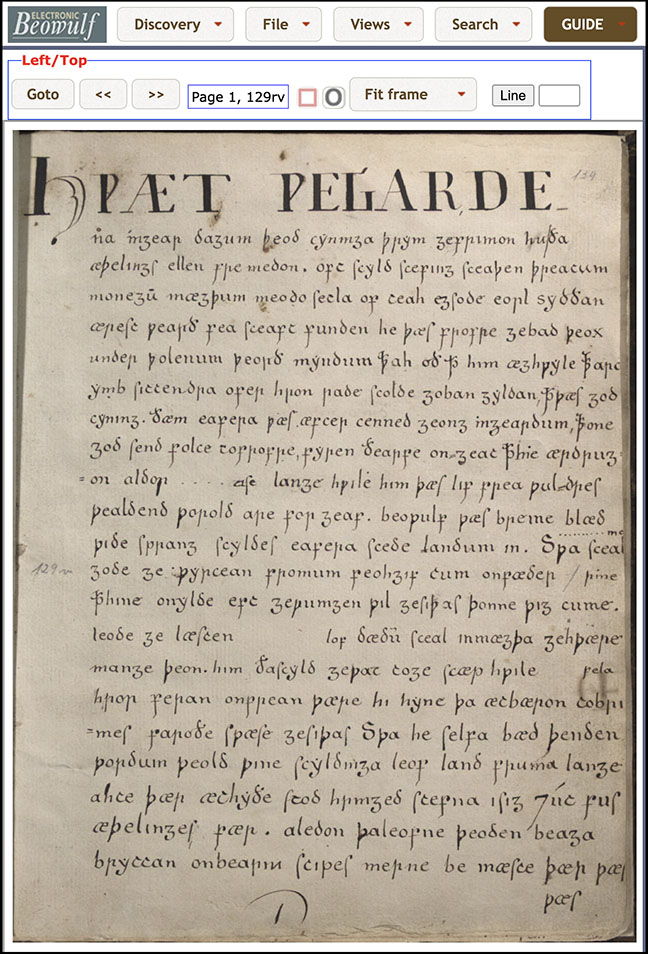 ELECTRONIC
Beowulf
Discovery
File
Views
Search
GUIDE
Left/Top
Goto
<<
>>
Page 1, 129rv
Fit frame
Line
HǷÆT ǷEGARDE
129
na ingear dagum þeod cyninga þrym gefrunon huða
æþelings ellen fre medon. oft scyld scefing sceaþen þreatum
monegū mægþum meodo setla of teah egsode eorl syððan
ærest ƿearð fea sceaft funden he þæs frofre gebad ƿeox
under ƿolcnum ƿeord myndum ꝥah oð ꝥ him æghƿyle
ymb sittendra ofer hron rade scolde goban gyldan, ꝥƿæs god
cyning. ðæm eafera ƿæs æfter cenned geong ingeardum, ꝥone
god send folce tofrofre, fyren ðearfe on-geat ꝥhie ærdrug=
=on aldor ..... ase lange hƿile him þæs lif frea ƿuldres
ƿealdend ƿorold are for geaf. beoƿulf ƿæs breme blæd
ƿide sprang scyldes eafera scede landum in. Sƿa sceal
129v
gode ge ƿyrcean fromum feohgif tum onfæder / rine
ꝥhine onylde eft geƿunigen ƿil gesiþas þonne ƿig cume.
leode ge læsten lof dædū sceal inmægþa gehƿære
mange þeon. him ðascyld geƿat toge scæp hƿile fela
hror feran onfrean ƿære hi hyne þa ætbæron tobri
=mes faroðe sƿæse gesiþas Sƿa he selfa bæd þenden
ƿordum ƿeold ƿine scyldinga leof land fruma lange
ahte þær æthyðe stod hringed stefna isig ⁊út fus
æþelinges fær. aledon þaleofne þeoden beaga
bryttan onbearm scipes merne be mæste þær ƿæs
ƿæs